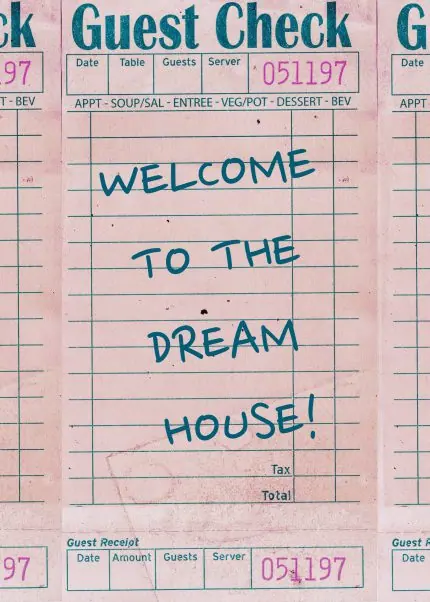 ck Guest Check G
Date Table Guests Server
97 051197 Date
T - BEV APPT - SOUP/SAL - ENTREE - VEG/POT - DESSERT - BEV APPT
WELCOME
TO THE
DREAM
HOUSE!
Tax
Total
Guest Receipt Guest R
Date Amount Guests Server Date
97 051197